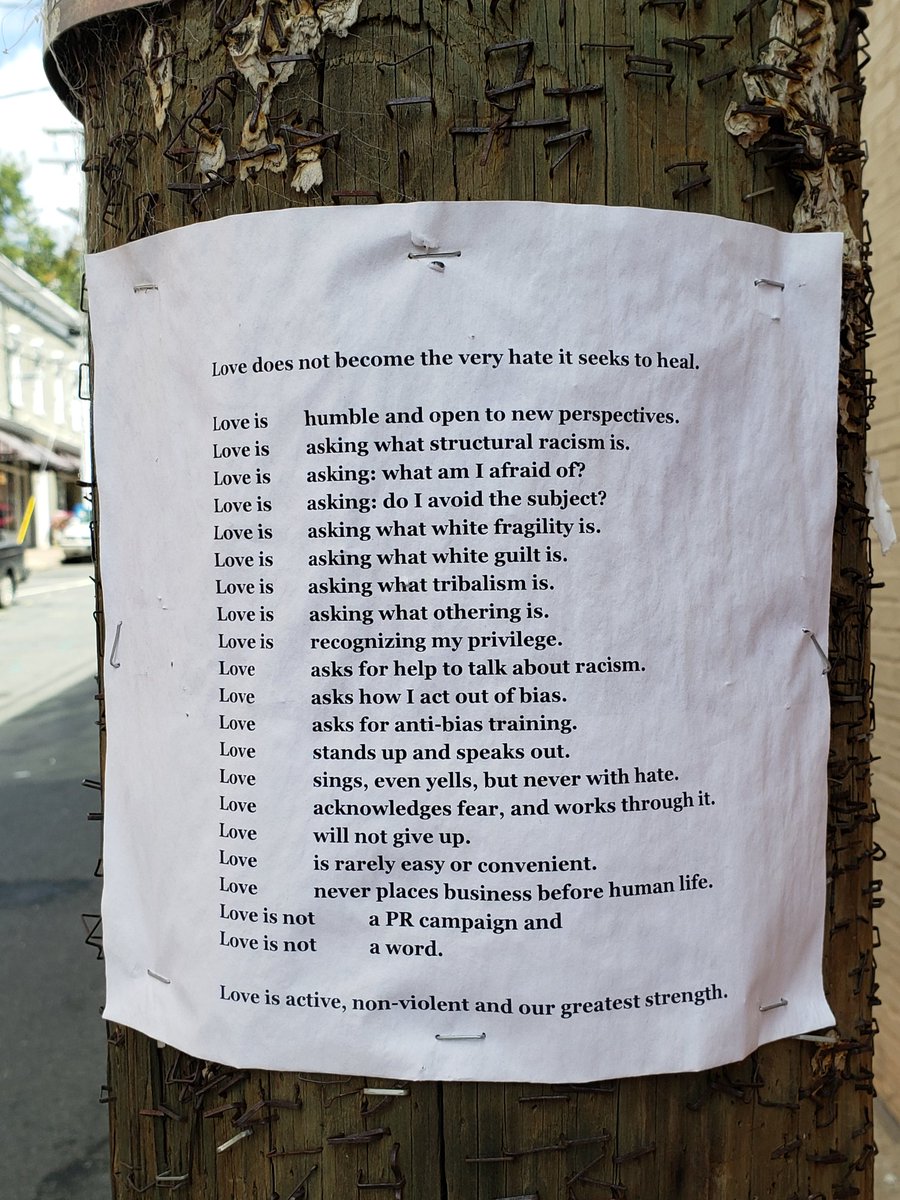 Love does not become the very hate it seeks to heal.
Love is humble and open to new perspectives.
Love is asking what structural racism is.
Love is asking: what am I afraid of?
Love is asking: do I avoid the subject?
Love is asking what white fragility is.
Love is asking what white guilt is.
Love is asking what tribalism is.
Love is asking what othering is.
Love is recognizing my privilege.
Love asks for help to talk about racism.
Love asks how I act out of bias.
Love asks for anti-bias training.
Love stands up and speaks out.
Love sings, even yells, but never with hate.
Love acknowledges fear, and works through it.
Love will not give up.
Love is rarely easy or convenient.
Love never places business before human life.
Love is not a PR campaign and
Love is not a word.
Love is active, non-violent and our greatest strength.